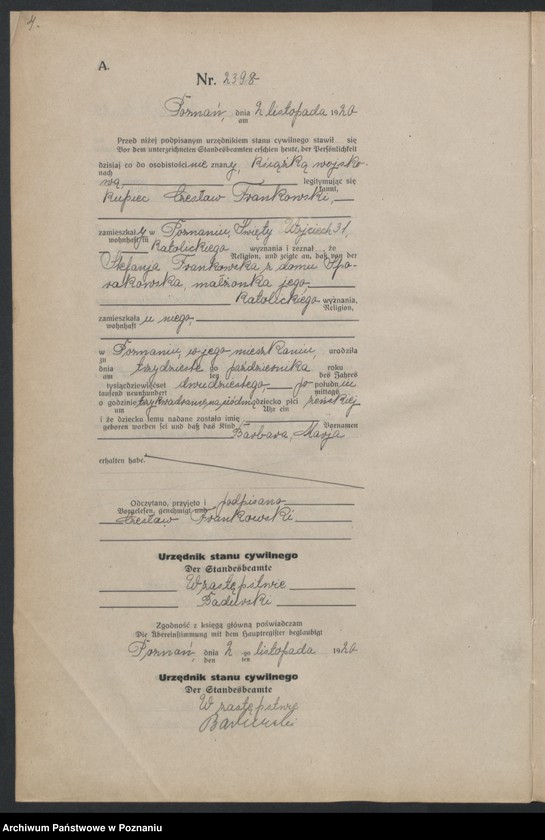 4.
A.
Nr. 2398
Poznań, dnia 2 listopada 1920
am
Przed niżej podpisanym urzędnikiem stanu cywilnego stawił się
Vor dem unterzeichneten Standesbeamten erschien heute, der Persönlichkeit
dzisiaj co do osobistości nie znany, książką wojsko-
nach
wą, legitymując się
kannt,
kupiec Czesław Frankowski,
zamieszkały w Poznaniu, Święty Wojciech 31,
wohnhaft in
katolickiego wyznania i zeznał, że
Religion, und zeigte an, daß von der
Stefanja Frankowska z domu Spo-
rakowska, małżonka jego,
katolickiego wyznania,
Religion,
zamieszkała u niego,
wohnhaft
w Poznaniu, w jego mieszkaniu, urodziła
zu
dnia trzydziestego października roku
am ten des Jahres
tysiącdziewięćset dwudziestego, po południu
tausend neunhundert mittags
o godzinie trzy kwadranse na siódmą dziecko płci żeńskiej
um Uhr ein
i że dziecku temu nadane zostało imię
geboren worden sei und daß das Kind Vornamen
Barbara, Marja
erhalten habe.
Odczytano, przyjęto i podpisano
Vorgelesen, genehmigt und
Czesław Frankowski
Urzędnik stanu cywilnego
Der Standesbeamte
W zastępstwie
Zgodność z księgą główną poświadczam
Die Übereinstimmung mit dem Hauptregister beglaubigt
Poznań, dnia 2 go listopada 1920
den ten
Urzędnik stanu cywilnego
Der Standesbeamte
W zastępstwie
Archiwum Państwowe w Poznaniu